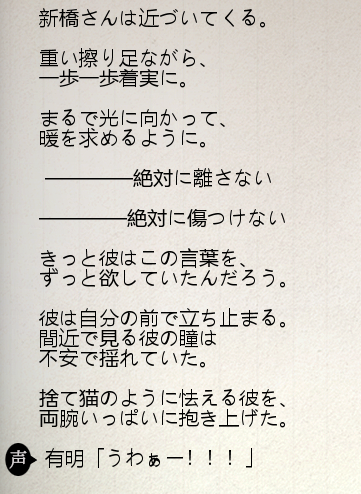 新橋さんは近づいてくる。
重い擦り足ながら、
一歩一歩着実に。
まるで光に向かって、
暖を求めるように。
――――絶対に離さない
――――絶対に傷つけない
きっと彼はこの言葉を、
ずっと欲していたんだろう。
彼は自分の前で立ち止まる。
間近で見る彼の瞳は
不安で揺れていた。
捨て猫のように怯える彼を、
両腕いっぱいに抱き上げた。
声 有明「うわぁー！！！」